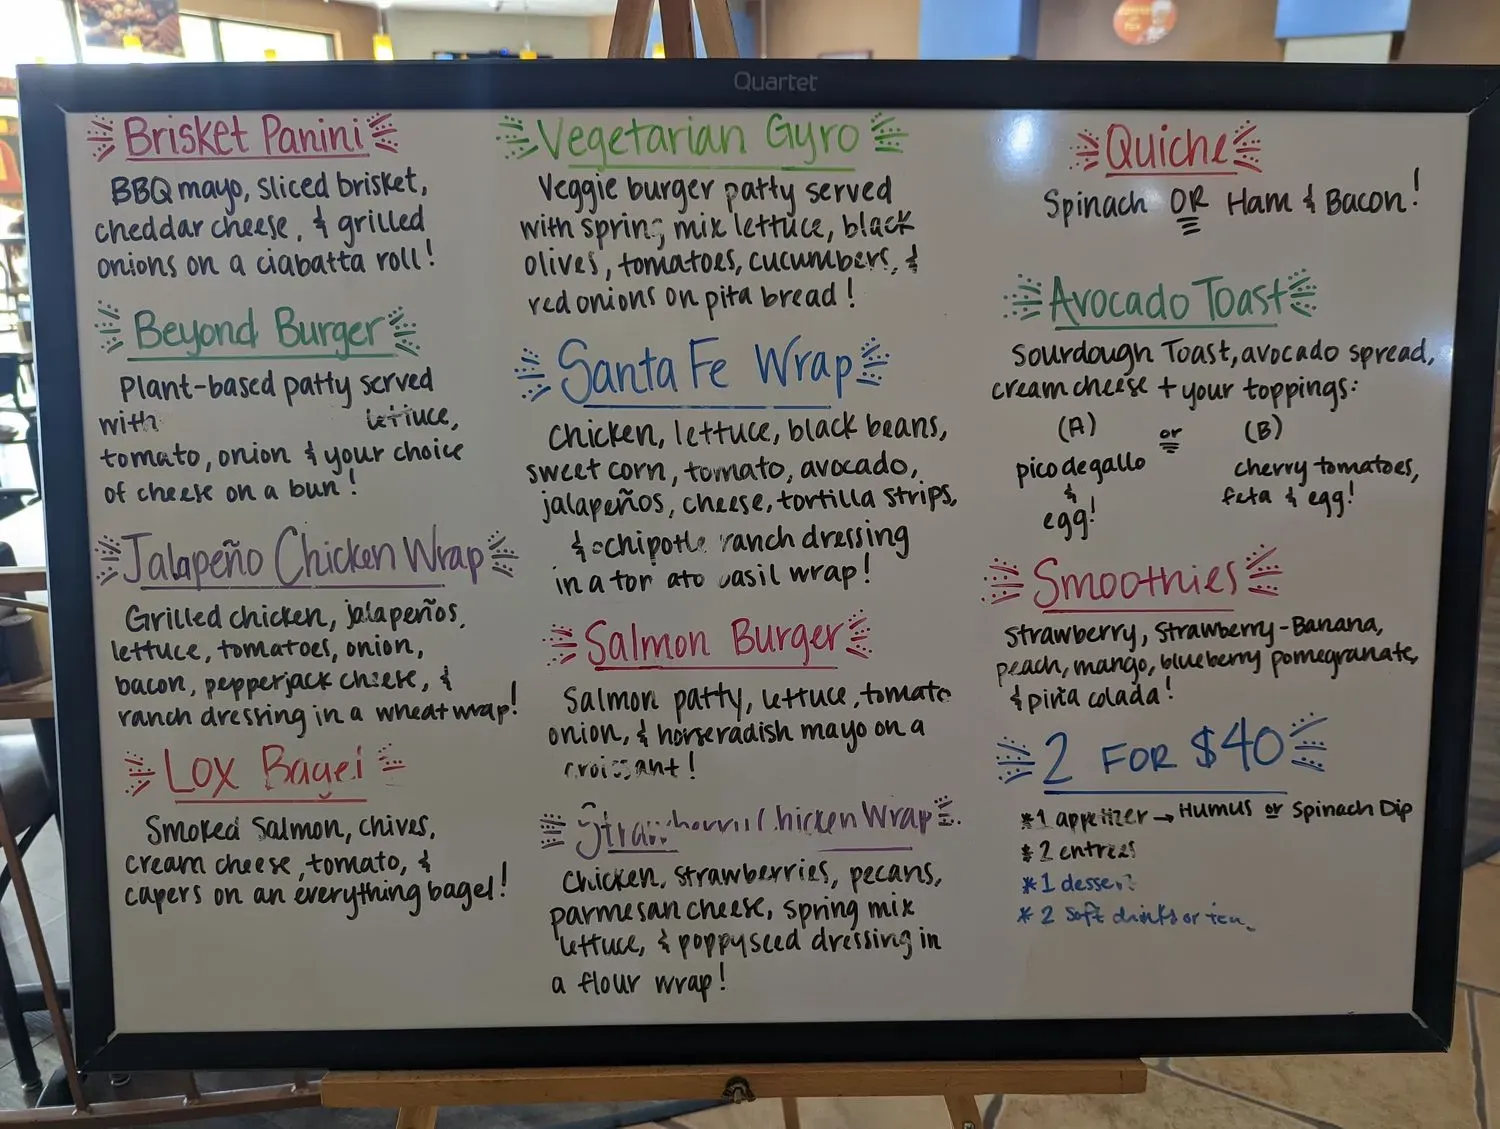 Quartet
Brisket Panini
BBQ mayo, sliced brisket,
cheddar cheese, & grilled
onions on a ciabatta roll!
Beyond Burger
Plant-based patty served
with lettuce,
tomato, onion & your choice
of cheese on a bun!
Jalapeño Chicken Wrap
Grilled chicken, jalapeños,
lettuce, tomatoes, onion,
bacon, pepperjack cheese, &
ranch dressing in a wheat wrap!
Lox Bagel
Smoked Salmon, chives,
cream cheese, tomato, &
capers on an everything bagel!
Vegetarian Gyro
Veggie burger patty served
with spring mix lettuce, black
olives, tomatoes, cucumbers, &
red onions on pita bread!
Santa Fe Wrap
Chicken, lettuce, black beans,
sweet corn, tomato, avocado,
jalapeños, cheese, tortilla strips,
& chipotle ranch dressing
in a tomato basil wrap!
Salmon Burger
Salmon patty, lettuce, tomato
onion, & horseradish mayo on a
croissant!
Strawberry Chicken Wrap
Chicken, strawberries, pecans,
parmesan cheese, spring mix
lettuce, & poppyseed dressing in
a flour wrap!
Quiche
Spinach OR Ham & Bacon!
Avocado Toast
Sourdough Toast, avocado spread,
cream cheese + your toppings:
(A) or (B)
pico de gallo
&
egg!
cherry tomatoes,
feta & egg!
Smoothies
Strawberry, Strawberry-Banana,
peach, mango, blueberry pomegranate,
& piña colada!
2 FOR $40
* 1 appetizer → Humus or Spinach Dip
* 2 entrees
* 1 dessert
* 2 soft drinks or tea